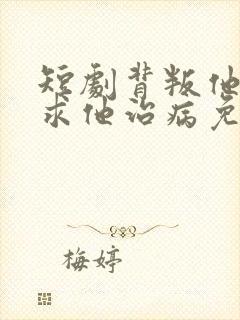 短劇背叛他
求他治病免
梅婷